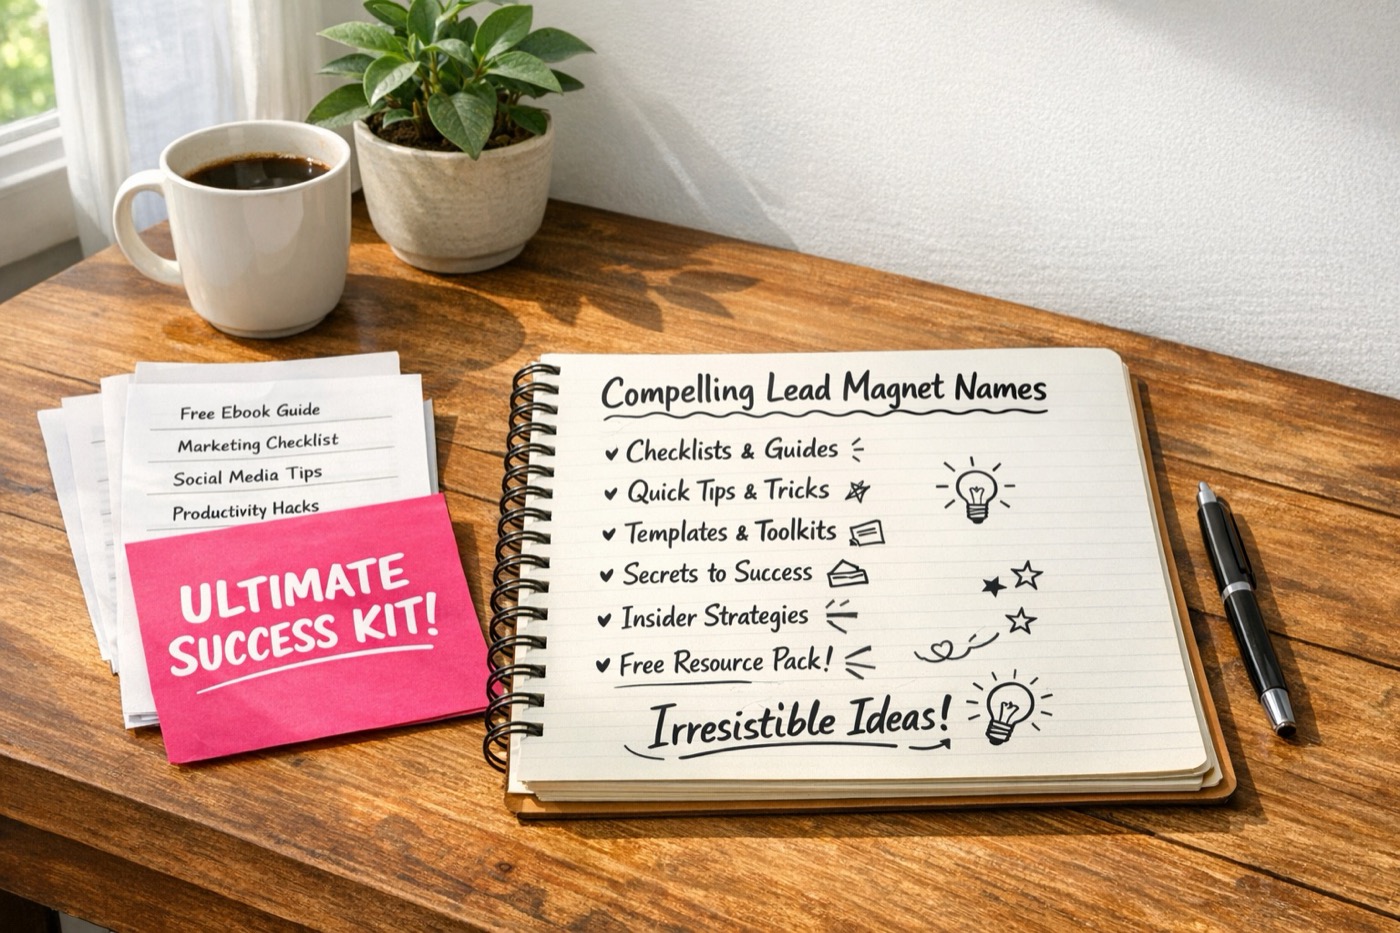 Free Ebook Guide
Marketing Checklist
Social Media Tips
Productivity Hacks
ULTIMATE
SUCCESS KIT!
Compelling Lead Magnet Names
Checklists & Guides
Quick Tips & Tricks
Templates & Toolkits
Secrets to Success
Insider Strategies
Free Resource Pack!
Irresistible Ideas!